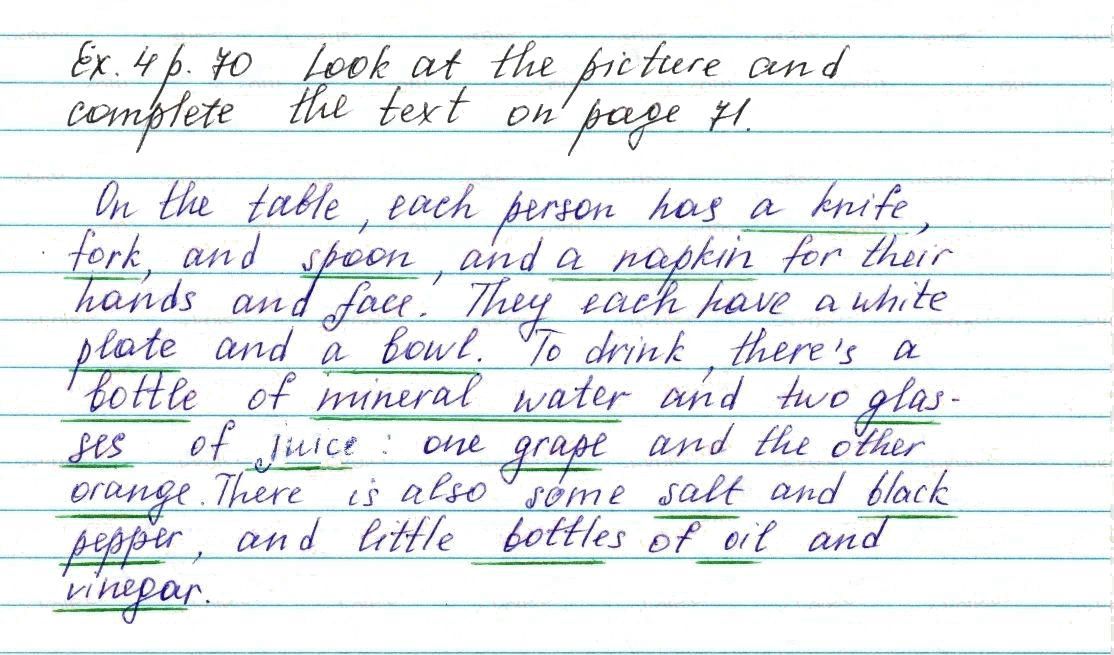 Ex. 4 p. 70 Look at the picture and
complete the text on page 71.
On the table, each person has a knife,
fork, and spoon, and a napkin for their
hands and face. They each have a white
plate and a bowl. To drink, there's a
bottle of mineral water and two glas-
ses of juice: one grape and the other
orange. There is also some salt and black
pepper, and little bottles of oil and
vinegar.